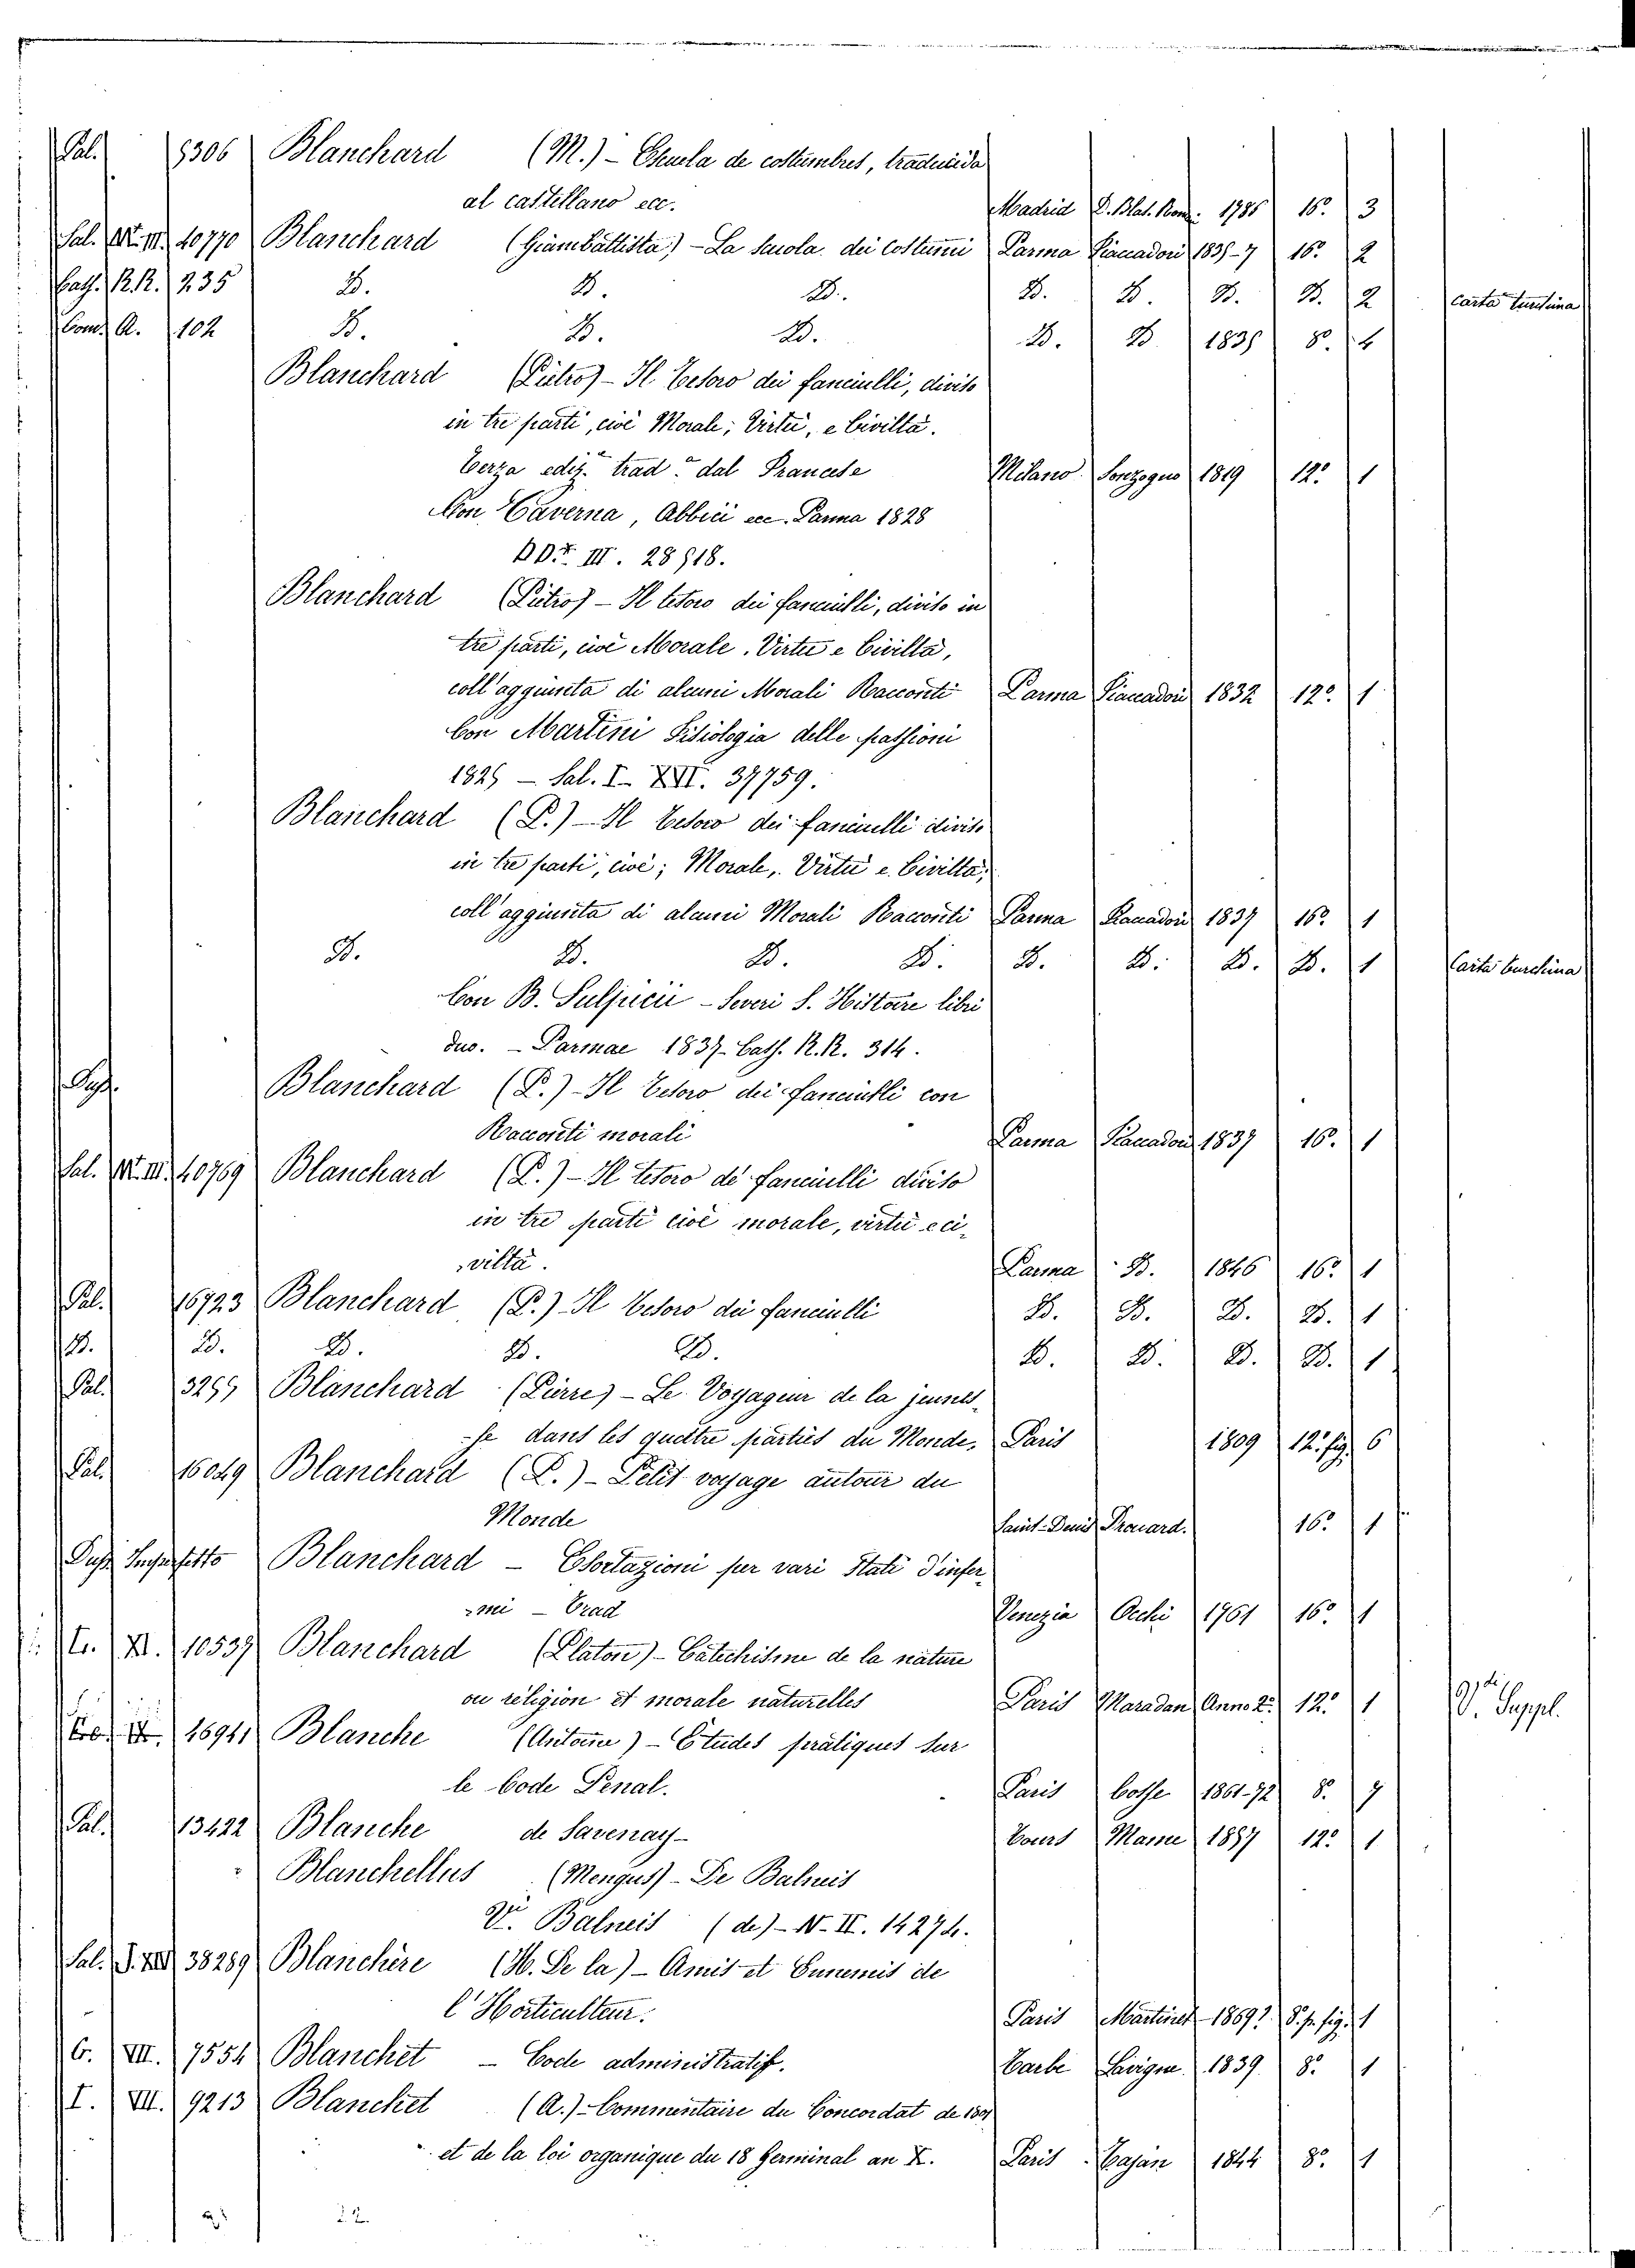 Pal. 9306 Blanchard (M.) - Escuela de costumbres, traducida
al castellano ecc. Madrid D. Blas. Rom. 1786 16.° 3
Sal. N. III. 40770 Blanchard (Giambattista) - La scuola dei costumi Parma Fiaccadori 1835-7 16.° 2
Cass. R.R. 235 D. D. D. D. D. D. D. 2 Carta turchina
Com. A. 102 D. D. D. D. D. 1835 8.° 4
Blanchard (Pietro) - Il Tesoro dei fanciulli, diviso
in tre parti, cioè Morale; Virtù, e Civiltà.
Terza ediz.e trad.a dal Francese Milano Sonzogno 1819 12.° 1
Con Taverna, Abbici ecc. Parma 1828
DD.x III. 28918.
Blanchard (Pietro) - Il tesoro dei fanciulli, diviso in
tre parti, cioè Morale, Virtù e Civiltà,
coll'aggiunta di alcuni Morali Racconti Parma Fiaccadori 1832 12.° 1
Con Martini Fisiologia delle passioni
1825 - Sal. I - XVI. 37759.
Blanchard (P.) - Il Tesoro dei fanciulli diviso
in tre parti, cioè; Morale, Virtù e Civiltà,
coll'aggiunta di alcuni Morali Racconti Parma Fiaccadori 1837 16.° 1
D. D. D. D. D. D. D. D. 1 Carta turchina
Con B. Sulpicii - Severi S. Historiæ libri
duo. - Parmae 1837 - Cass. R.R. 314.
Dup. Blanchard (P.) - Il Tesoro dei fanciulli con
Racconti morali Parma Fiaccadori 1837 16.° 1
Sal. N. III. 40769 Blanchard (P.) - Il tesoro de' fanciulli diviso
in tre parti cioè morale, virtù e ci-
viltà. Parma D. 1846 16.° 1
Pal. 16723 Blanchard (P.) - Il Tesoro dei fanciulli D. D. D. D. 1
D. D. D. D. D. D. D. D. D. 1
Pal. 3299 Blanchard (Pierre) - Le Voyageur de la jeunes-
-se dans les quattre parties du Monde. Paris 1809 12.° fig. 6
Pal. 16049 Blanchard (P.) - Petit voyage autour du
Monde Saint-Denis Prouard. 16.° 1
Dup. Imperfetto Blanchard - Esortazioni per vari Stati d'infer-
-mi - Trad Venezia Occhi 1761 16.° 1
Tr. XI. 10537 Blanchard (Platon) - Catéchisme de la nature
ou religion et morale naturelles Paris Maradan Anno 2.° 12.° 1 V.di Suppl.
16941 Blanche (Antoine) - Études pratiques sur
le Code Penal. Paris Cosse 1861-72 8.° 7
Pal. 13422 Blanche de Savenay - Tours Mame 1857 12.° 1
Blanchellus (Mengus) - De Balneis
V.di Balneis (de) - N. II. 14274.
Sal. I. XIII 38289 Blanchère (H. De la) - Amis et Ennemis de
l'Horticulteur. Paris Martinet 1869? 8.° p. fig. 1
G. VII. 7554 Blanchet - Code administratif. Tarbe Lavigne 1839 8.° 1
I. VII. 9213 Blanchet (A.) - Commentaire du Concordat de 1801
et de la loi organique du 18 Germinal an X. Paris Cajan 1844 8.° 1
22